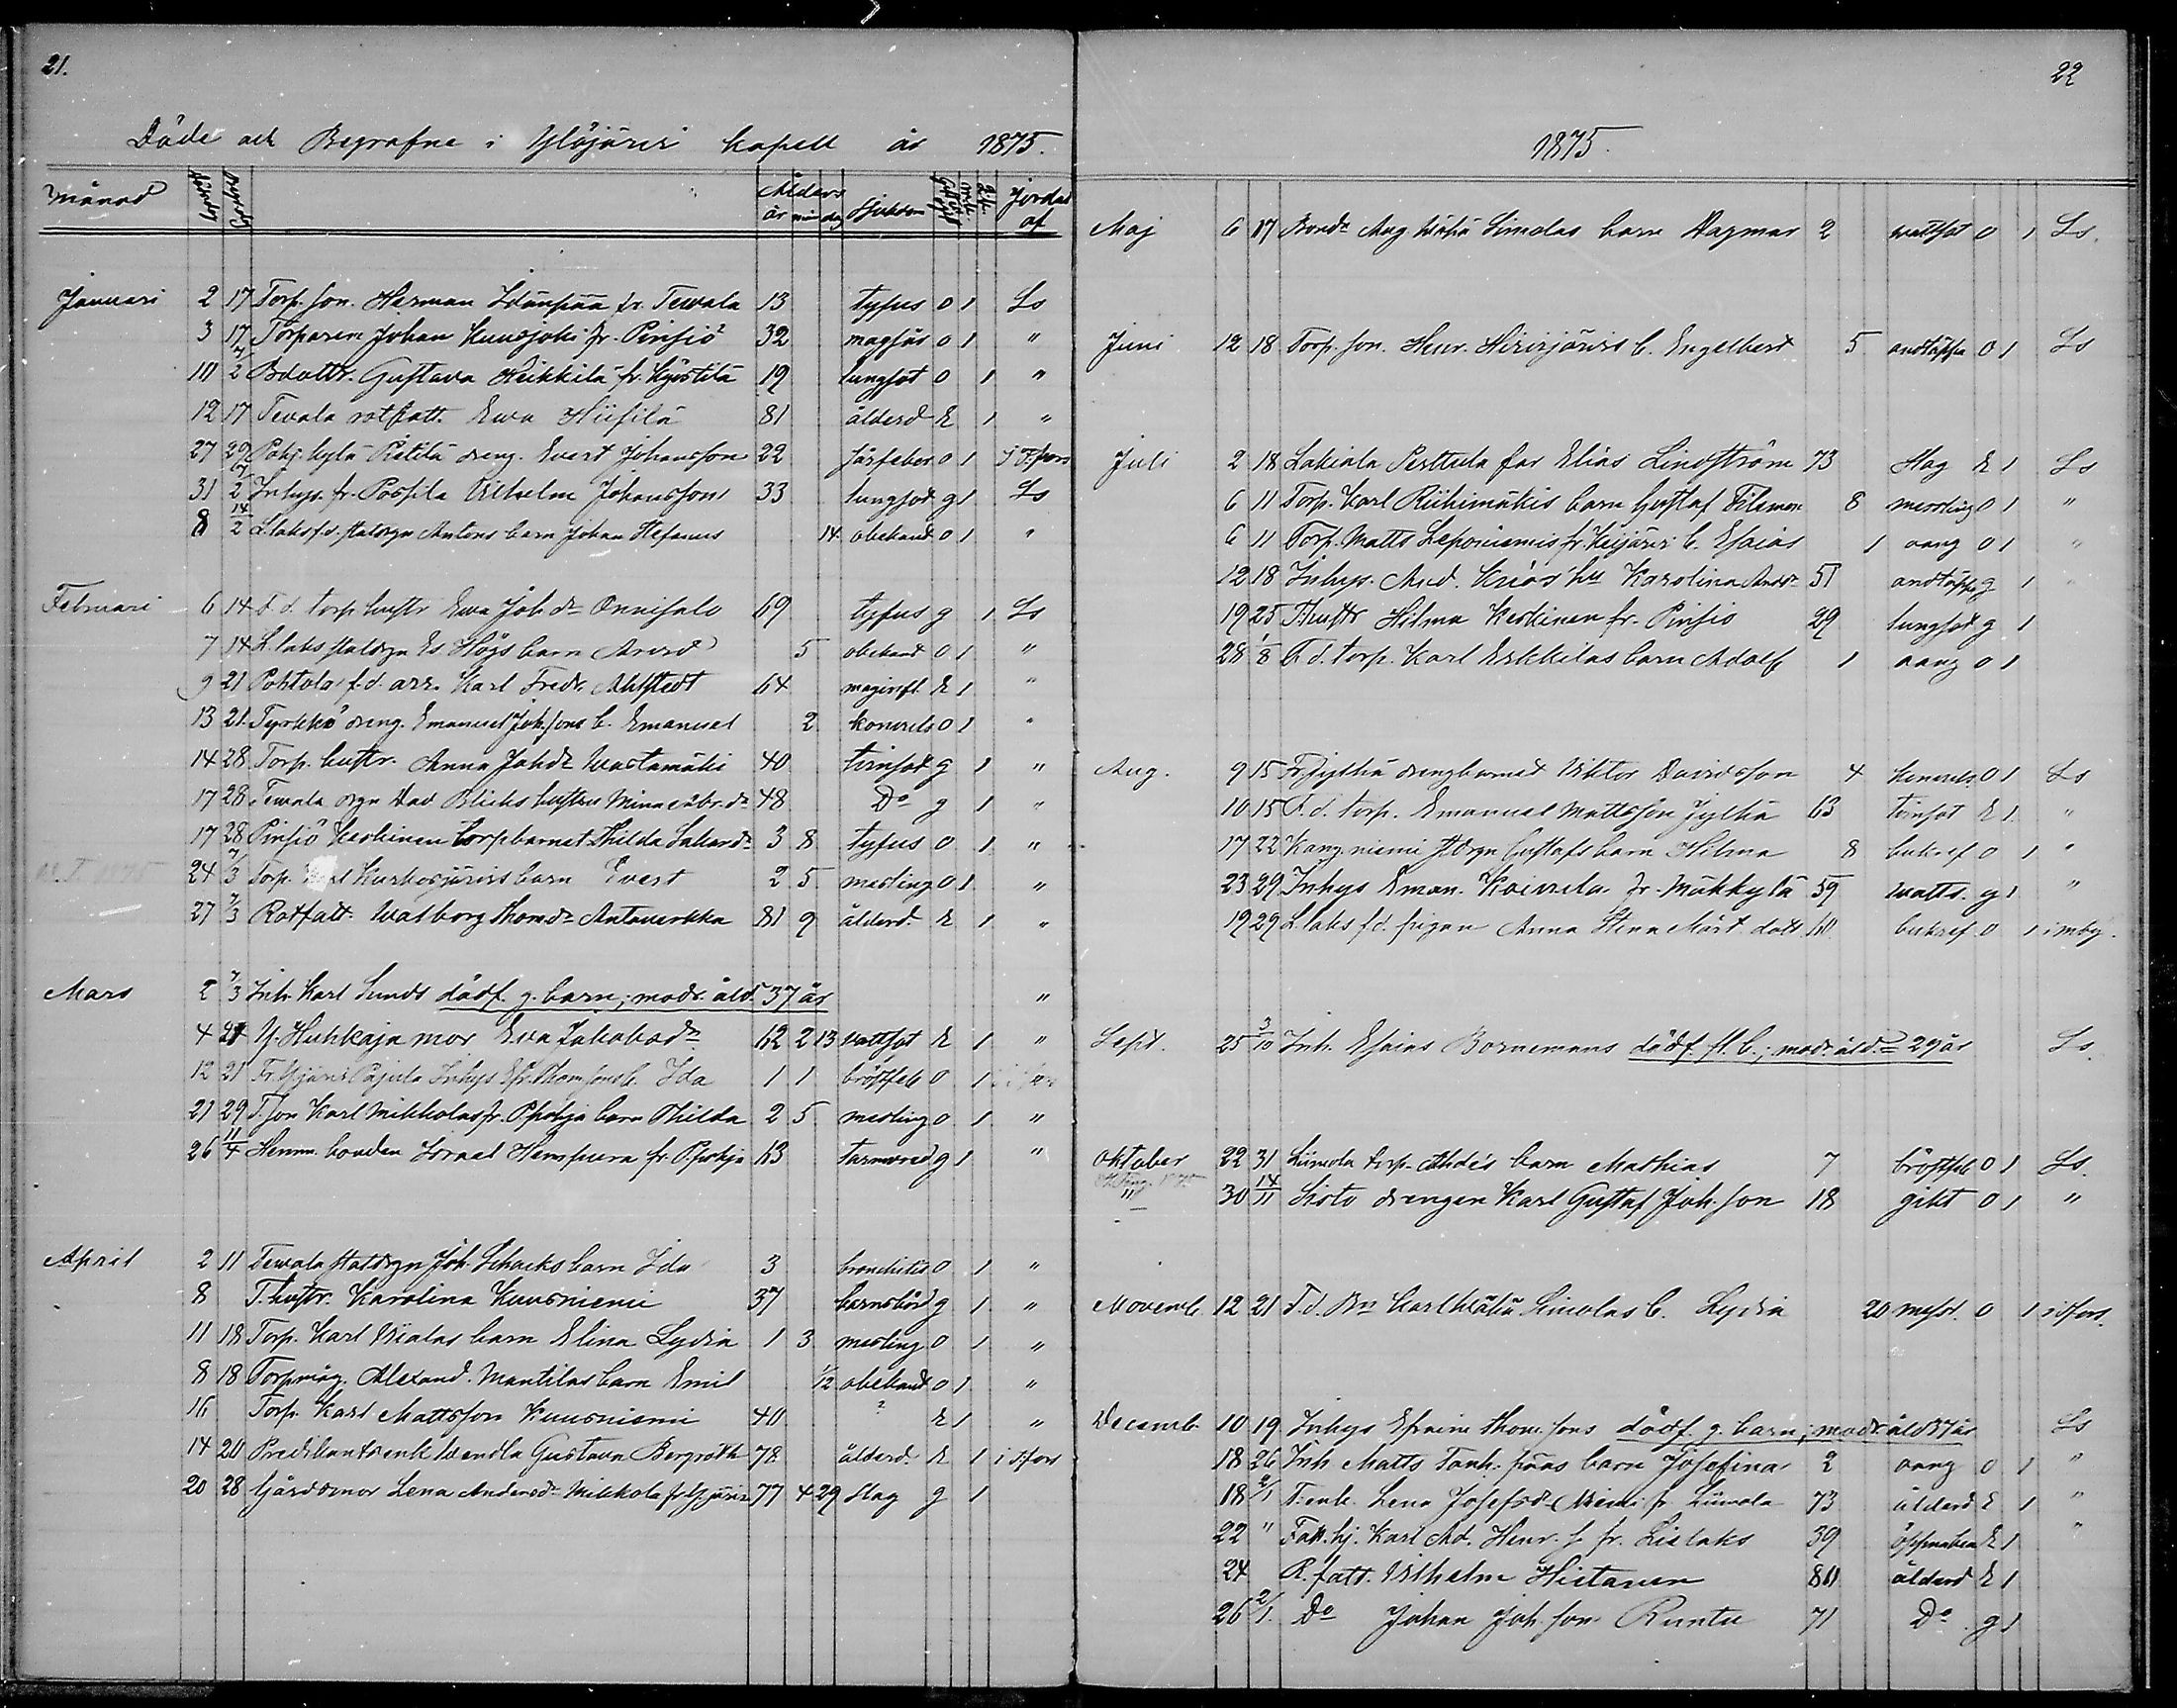 21.
Döde och Begrafne i Ylöjärvi kapell år 1875.
Månad Ålders år mån dag Sjukdom Jordad af
Januari 2 17 Torp. son. Herman Ylänpää fr. Tewala 13 typus o 1 Ls
3 17 Torparen Johan Kuusjoki fr. Pinsiö 32 magsår o 1 "
10 7/2 Bdottr. Gustava Heikkilä fr. Kyöstilä 19 lungsot o 1 "
12 17 Tevala rotfatt. Ewa Hiisilä 81 ålderd E 1 "
27 29 Pohj. kylä Pietilä dreng. Evert Johansson 22 o 1 i T:fors
31 7/2 Inhys. fr. Possila Vilhelm Johansson 33 lungsot g 1 Ls
8 14/2 Antons barn Johan Stefanus 14 obekand o 1 "
Februari 6 14 F. d. torp hustr Ewa Joh dr Onnisalo 69 typus g 1 Ls
7 14 L. laks statdrgn Es Högs barn Arvid 5 obekand o 1 "
9 21 Pohtola f. d. arr. Karl Fredr. Ahlstedt 64 maginfl. E 1 "
13 21 Tyrkkö dreng. Emanuel Joh. sons b. Emanuel 2 konvuls o 1 "
14 28 Torp. hustr. Anna Johdr Wastamäki 40 tvinsot g 1 "
17 28 Tewala drgn Dav Blicks hustru Mina 48 Do g 1 "
17 28 Pinsiö Keskinen torpbarnet Hilda 3 8 typus o 1 "
24 7/3 Torp. Kurkesjärvis barn Evert 2 5 mesling o 1 "
27 7/3 Rotfatt. Walborg Thomdr Antaverkka 81 9 ålderd. E 1 "
Mars 2 7/3 Inh. Karl Sunds dödf. g. barn; modr. åld. 37 år "
4 21 Y. Huhkaja mor Eva Jakobsdr 62 2 13 vattsot E 1 "
12 21 Fr. Yjärvi Pajula Inhys Efr. Thomsons b. Ida 1 1 bröstfeb o 1
21 29 T. son Karl Mikkolas fr. Ppohja barn Hilda 2 5 mesling o 1 "
26 11/4 Hemm. bonden Israel Hempura fr. P. pohja 63 tarmvred g 1 "
April 2 11 Tewala statdrgn Joh. Schacks barn Ida 3 bronchites o 1 "
8 T. hustr. Karolina Kuusniemi 37 barnsbörd g 1 "
11 18 Torp. Karl Uialas barn Elina Lydia 1 3 mesling o 1 "
8 18 Torpmåg. Alexand. Mantilas barn Emil 1/2 obekand o 1 "
16 Torp. Karl Mattsson Kuusniemi 40 ? E 1 "
14 20 Predikantsenk Wendla Gustava Bergroth 78 ålderd. E 1 i Hfors
20 28 Gårdsmor Lena Andersdr Mikkola fr Yjärvi 77 4 29 Slag g 1
22
1875.
Maj 6 17 Bondr Aug Wähä Simolas barn Dagmar 2 vattsot o 1 Ls.
Juni 12 18 Torp. son. Henr. Hirvijärvis b. Engelbert 5 andtäppa o 1 Ls
Juli 2 18 Lakiala Perttula far Elias Lindström 73 Slag E 1 Ls
6 11 Torp. Karl Riihimäkis barn Gustaf Filemon 8 messling o 1 "
6 11 Torp. Matts Leponiemis fr. Keijärvi b. Esaias 1 oang o 1 "
12 18 Inhys. And. Kriös hu Karolina Andr 51 andtäppa g 1
19 25 T. hustr Hilma Keskinen fr. Pinsiö 29 lungsot g 1
28 1/8 F. d. torp. Karl Erkkilas barn Adolf 1 oang o 1
Aug. 9 15 Fr. Jylhä drengbarnet Viktor Davidsson 4 konvuls. o 1 Ls
10 15 F. d. torp. Emanuel Mattsson Jylhä 63 tvinsot E 1 "
17 22 Kang. niemi stdrgn Gustafs barn Hilma 8 bukref o 1 "
23 29 Inhys Eman. Koivula fr. Mäkkylä 59 watts. g 1 "
19 29 L. laks f d. pigan Anna Stina Märt. dott 60 bukref o 1
Sept. 25 3/10 Inh. Esaias Bornemans dödf. fl. b.; modr. åld. = 29 år Ls.
Oktober 22 31 Liimola torp. Ahdés barn Mathias 7 bröstfeb o 1 Ls.
" 30 14/11 Sisto drengen Karl Gustaf Joh. son 18 gikt o 1 "
Novemb. 12 21 F. d. Bn Karl Wähä Simolas b. Lydia 20 o 1
Decemb. 10 19 Inhys Efraim Thom. sons dödf. g. barn; modr. åld 37 år Ls
18 26 Inh Matts Tanh. pääs barn Josefina 2 oang o 1 "
18 2/1 T. enk. Lena Josefsdr Niemi fr. Liimola 73 ålderd E 1 "
22 " Fatt. hj. Karl Ad. Henr. s. fr. Lielaks 39 E 1 "
24 R. fatt. Vilhelm Hietanen 80 ålderd E 1
26 2/1 Do Johan Joh. son Runtu 71 Do g 1